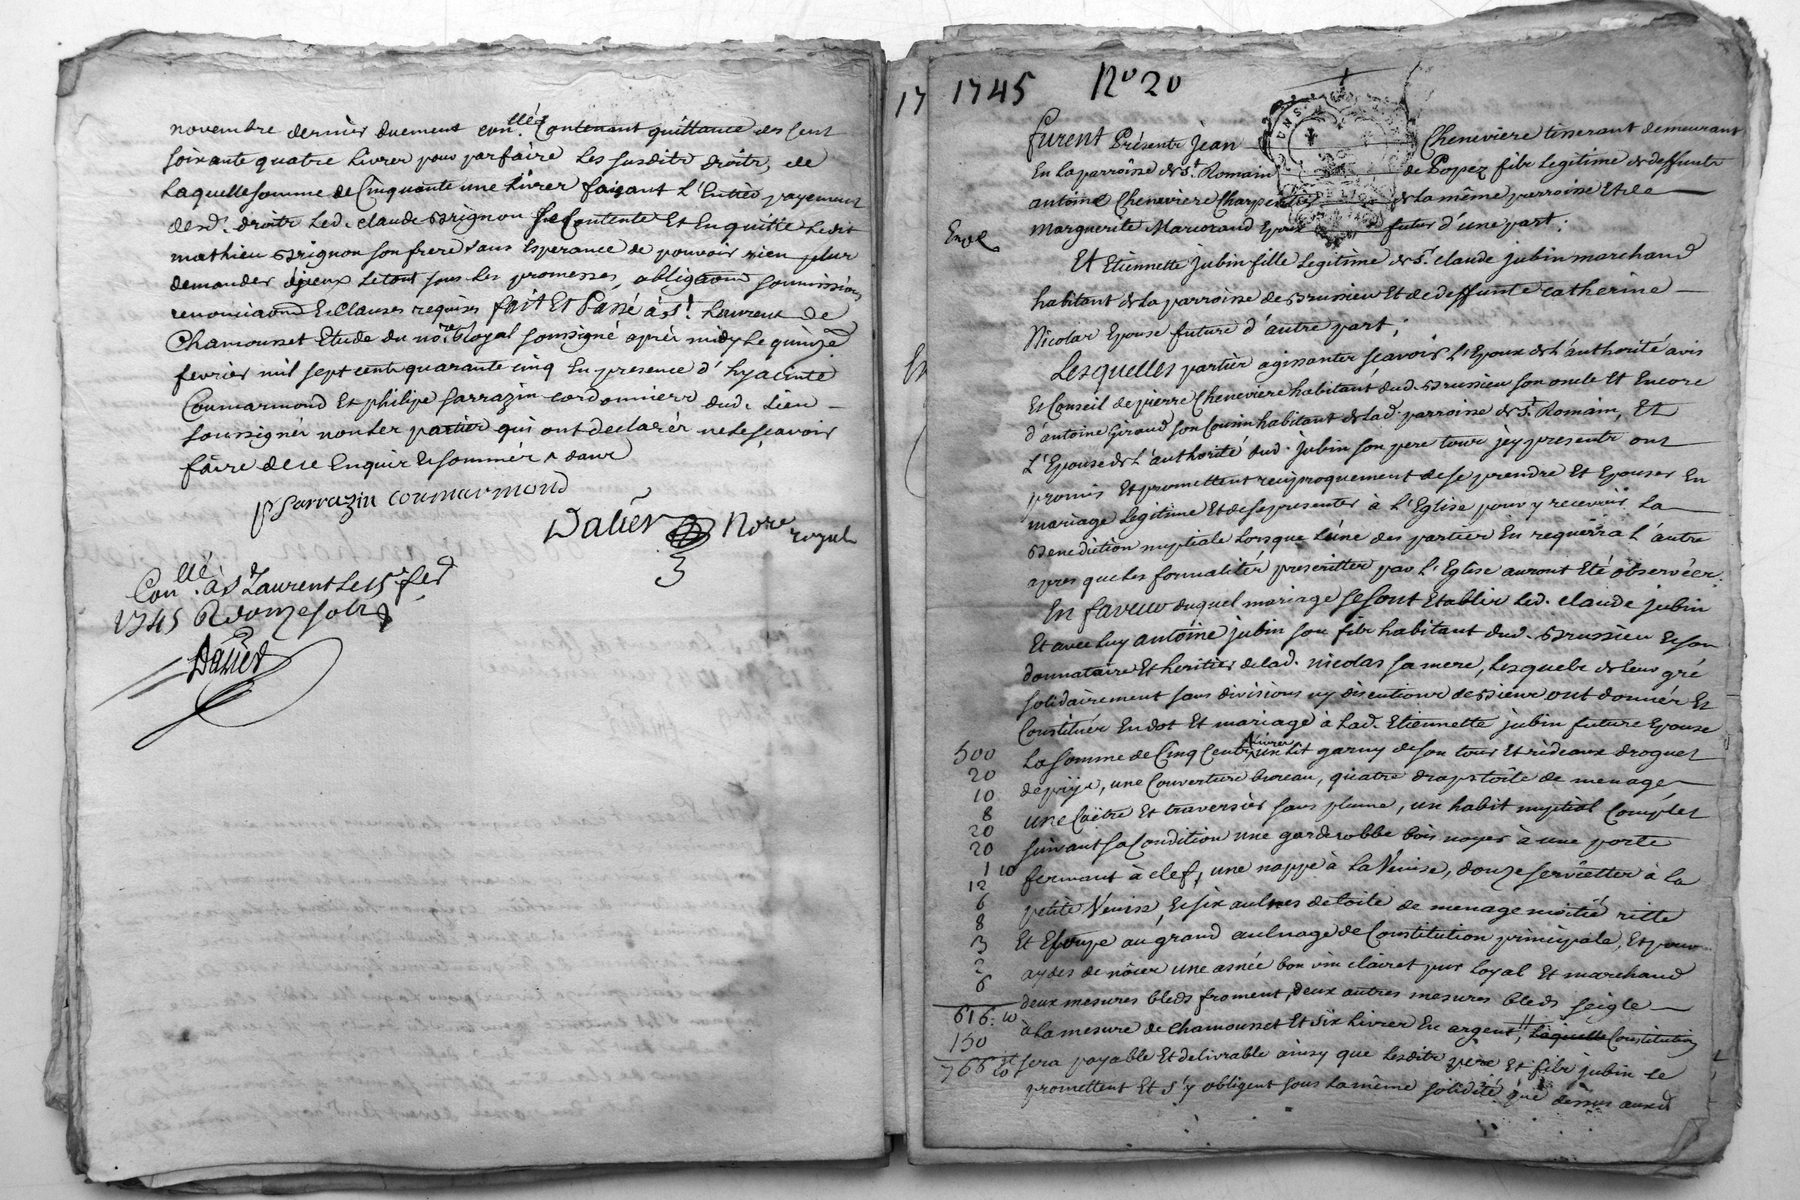 novembre dernier duement con.llé Contenant quittance des cent
soixante quatre Livres pour parfaire Les susdits droits, de
Laquelle somme de Cinquante une Livres faizant L'Entier payement
desd. droits Led. claude Brignon se Contente Et Enquitte Ledit
mathieu Brignon son frere sans Esperance de pouvoir rien plus
demander Letout sous Les promesses, obligaõns soumissions
renonciaõns & Clauses requises fait Et Passé à St. Laurent de
Chamousset Etude du nore. Royal soussigné après midy Le quinze
fevrier mil sept cents quarante cinq En presence d'hyacinte
Coumarmond Et philipe Sarrazin cordonniers dud. Lieu
soussignés non Les parties qui ont declarés ne Le scavoir
faire de ce Enquis & sommés
P Sarrazin Coumarmond
Dalier Nore royal
Con.llé à St Laurent Le 15e fed
1745 R douze sols
Dalier
17 1745 No 20
furent Présents Jean Cheneviere tisserant demeurant
En La parroisse de St. Romain de Popez fils Legitime de deffunts
antoine Cheneviere Charpentier de La même parroisse Et de
marguerite Mariorand Epoux futur d'une part;
Et Etiennette jubin fille Legitime de Sr. claude jubin marchand
habitant de La parroisse de Brussieu Et de deffunte catherine
Nicolas Epouse future d'autre part;
Lesquelles parties agissantes scavoir L'Epoux de L'authorité avis
Et Conseil de pierre Cheneviere habitant dud. Brussieu son oncle Et Encore
d'antoine Giraud son Cousin habitant de Lad. parroisse de St. Romain, Et
L'Epouse de L'authorité dud. Jubin son pere tous jcy presents ont
promis Et promettent reciproquement de se prendre Et Epouser En
mariage Legitime Et de se presenter à L'Eglise pour y recevoir La
Benediction nuptiale Lorsque L'une des parties En requerra L'autre
apres que Les formalités prescrittes par L'Eglise auront Eté observées.
En faveur duquel mariage se sont Etablis Led. claude jubin
Et avec Luy antoine jubin son fils habitant dud. Brussieu & son
donnataire Et heritier de Lad. nicolas sa mere, Lesquels de Leur gré
solidairement sans divisions ny discutions de Biens ont donnés Et
Constitués En dot Et mariage à Lad. Etiennette jubin future Epouse
500 La somme de Cinq Cents Livres un Lit garny de son tour Et rideaux droguet
20 de pije, une Couverture bureau, quatre draps toile de menage
10 une Coëtre Et traversier sans plume, un habit nuptial Complet
8 suivant sa Condition une garderobbe bois noyer à une porte
20 fermant à clef, une nappe à La Venise, douze serviettes à La
20 petite Venise, & six aulnes de toile de menage moitié ritte
1 10 Et Etoupe au grand aulnage de Constitution principale, Et pour
12 aydes de nôces une asnée bon vin clairet pur Loyal Et marchand
6 deux mesures bleds froment, deux autres mesures bleds seigle
8 à La mesure de chamousset Et six Livres En argent, Laquelle Constitution
3 sera payable Et delivrable ainsy que Lesdits pere Et fils jubin Le
2 promettent Et s'y obligent sous La même solidité que dessus auxd
6
616. 10
150
766 10